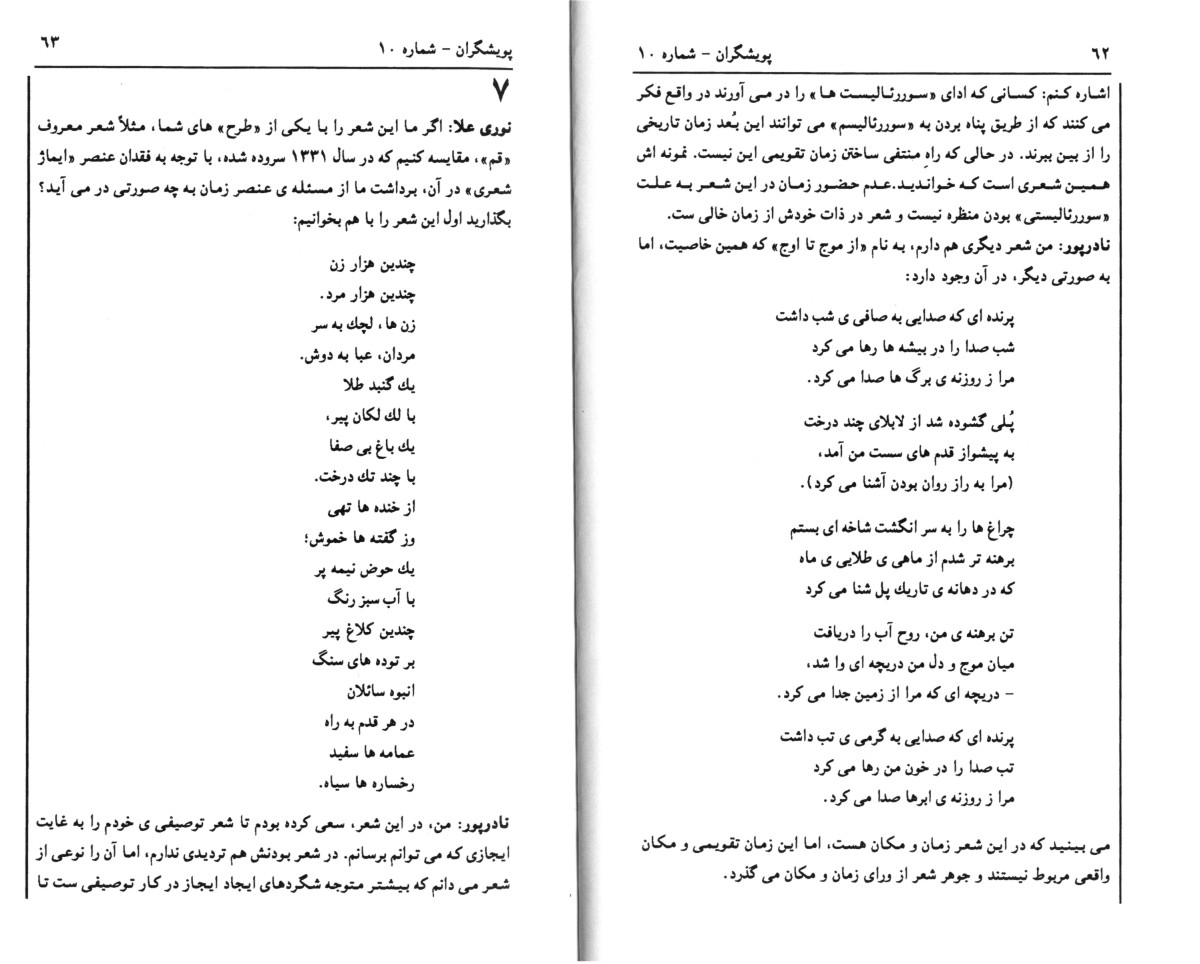 ۶۲
پویشگران - شماره ۱۰
اشاره کنم: کسانی که ادای «سوررئالیست ها» را در می آورند در واقع فکر
می کنند که از طریق پناه بردن به «سوررئالیسم» می توانند این بُعد زمان تاریخی
را از بین ببرند. در حالی که راهِ منتفی ساختن زمان تقویمی این نیست. نمونه اش
همین شعری است که خواندید.عدم حضور زمان در این شعر به علت
«سوررئالیستی» بودن منظره نیست و شعر در ذات خودش از زمان خالی ست.
نادرپور: من شعر دیگری هم دارم، به نام «از موج تا اوج» که همین خاصیت، اما
به صورتی دیگر، در آن وجود دارد:
پرنده ای که صدایی به صافی ی شب داشت
شب صدا را در بیشه ها رها می کرد
مرا ز روزنه ی برگ ها صدا می کرد.
پُلی گشوده شد از لابلای چند درخت
به پیشواز قدم های سست من آمد،
(مرا به راز روان بودن آشنا می کرد).
چراغ ها را به سر انگشت شاخه ای بستم
برهنه تر شدم از ماهی ی طلایی ی ماه
که در دهانه ی تاریك پل شنا می کرد
تن برهنه ی من، روح آب را دریافت
میان موج و دل من دریچه ای وا شد،
- دریچه ای که مرا از زمین جدا می کرد.
پرنده ای که صدایی به گرمی ی تب داشت
تب صدا را در خون من رها می کرد
مرا ز روزنه ی ابرها صدا می کرد.
می بینید که در این شعر زمان و مکان هست، اما این زمان تقویمی و مکان
واقعی مربوط نیستند و جوهر شعر از ورای زمان و مکان می گذرد.
پویشگران - شماره ۱۰
۶۳
۷
نوری علا: اگر ما این شعر را با یکی از «طرح» های شما، مثلاً شعر معروف
«قم»، مقایسه کنیم که در سال ۱۳۳۱ سروده شده، با توجه به فقدان عنصر «ایماژ
شعری» در آن، برداشت ما از مسئله ی عنصر زمان به چه صورتی در می آید؟
بگذارید اول این شعر را با هم بخوانیم:
چندین هزار زن
چندین هزار مرد.
زن ها، لچك به سر
مردان، عبا به دوش.
یك گنبد طلا
با لك لکان پیر،
یك باغ بی صفا
با چند تك درخت.
از خنده ها تهی
وز گفته ها خموش؛
یك حوض نیمه پر
با آب سبز رنگ
چندین کلاغ پیر
بر توده های سنگ
انبوه سائلان
در هر قدم به راه
عمامه ها سفید
رخساره ها سیاه.
نادرپور: من، در این شعر، سعی کرده بودم تا شعر توصیفی ی خودم را به غایت
ایجازی که می توانم برسانم. در شعر بودنش هم تردیدی ندارم، اما آن را نوعی از
شعر می دانم که بیشتر متوجه شگردهای ایجاد ایجاز در کار توصیفی ست تا